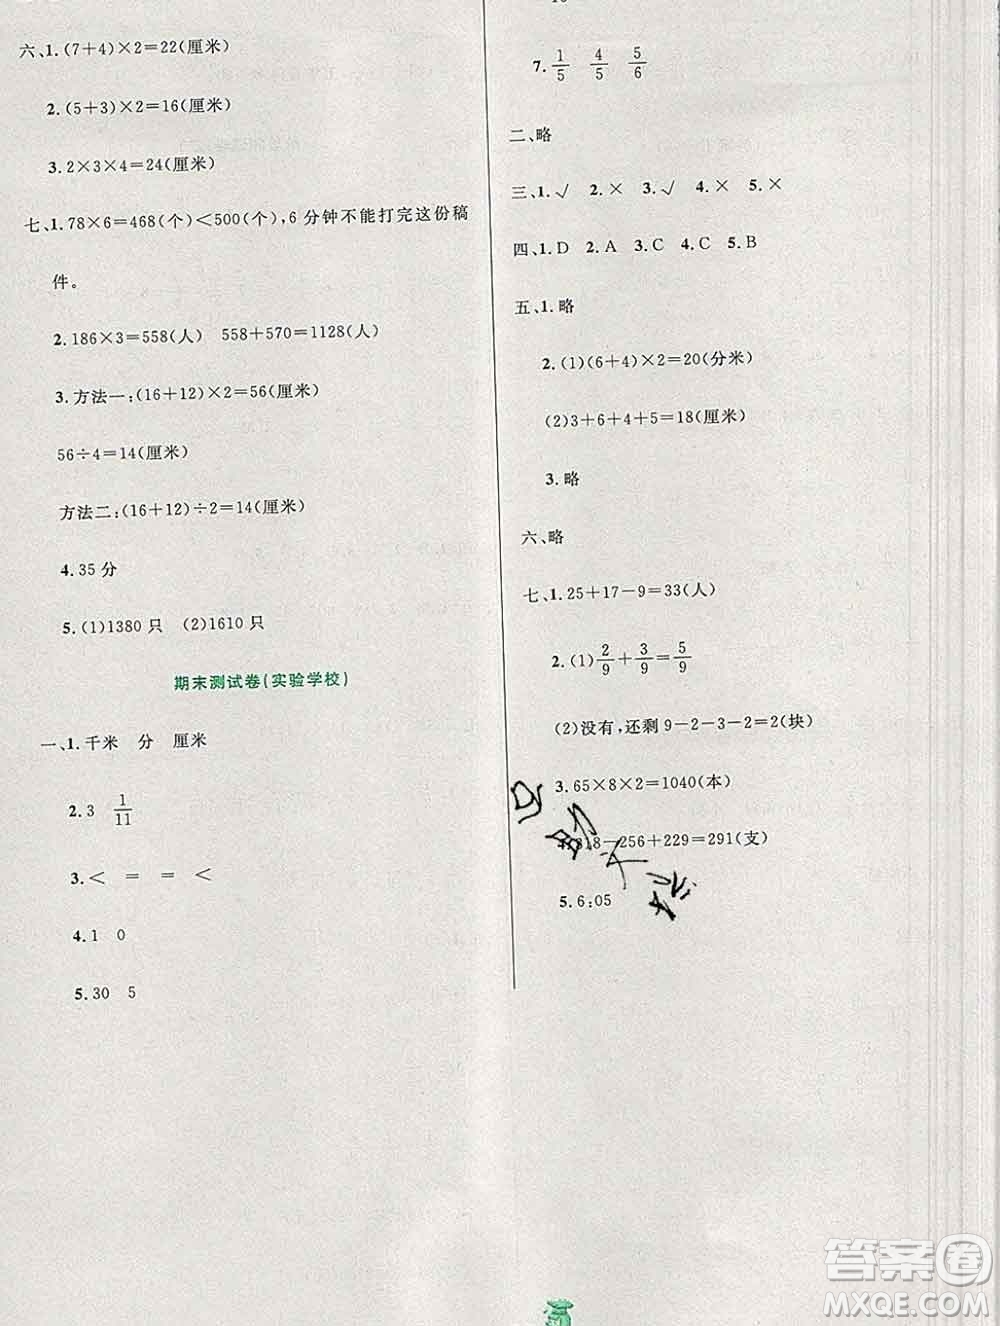 六、1.(7+4)×2=22(厘米)
2.(5+3)×2=16(厘米)
3.2×3×4=24(厘米)
七、1.78×6=468(个)<500(个),6分钟不能打完这份稿
件。
2.186×3=558(人) 558+570=1128(人)
3.方法一:(16+12)×2=56(厘米)
56÷4=14(厘米)
方法二:(16+12)÷2=14(厘米)
4.35分
5.(1)1380只 (2)1610只
期末测试卷(实验学校)
一、1.千米 分 厘米
2.3 1/11
3.< = = <
4.1 0
5.30 5
7.1/5 4/5 5/6
二、略
三、1.√ 2.× 3.√ 4.× 5.×
四、1.D 2.A 3.C 4.C 5.B
五、1.略
2.(1)(6+4)×2=20(分米)
(2)3+6+4+5=18(厘米)
3.略
六、略
七、1.25+17-9=33(人)
2.(1)2/9+3/9=5/9
(2)没有,还剩9-2-3-2=2(块)
3.65×8×2=1040(本)
318-256+229=291(支)
5.6:05
答案圈
MXQE.COM